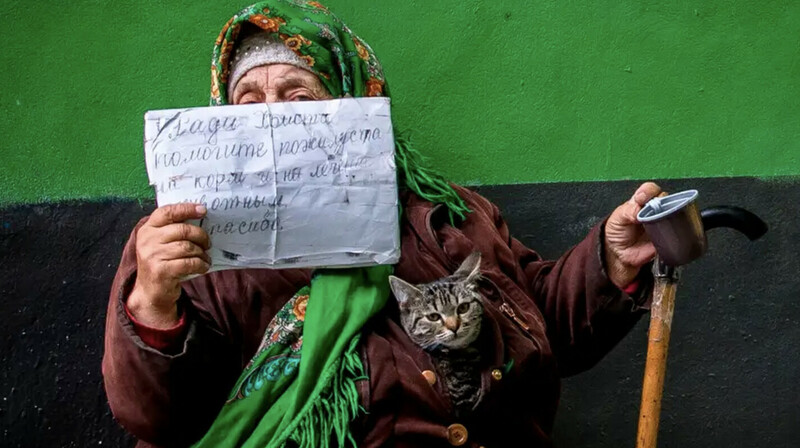 Ради Христа
помогите пожалуста
на корм и на лечение
животным.
Спасибо.